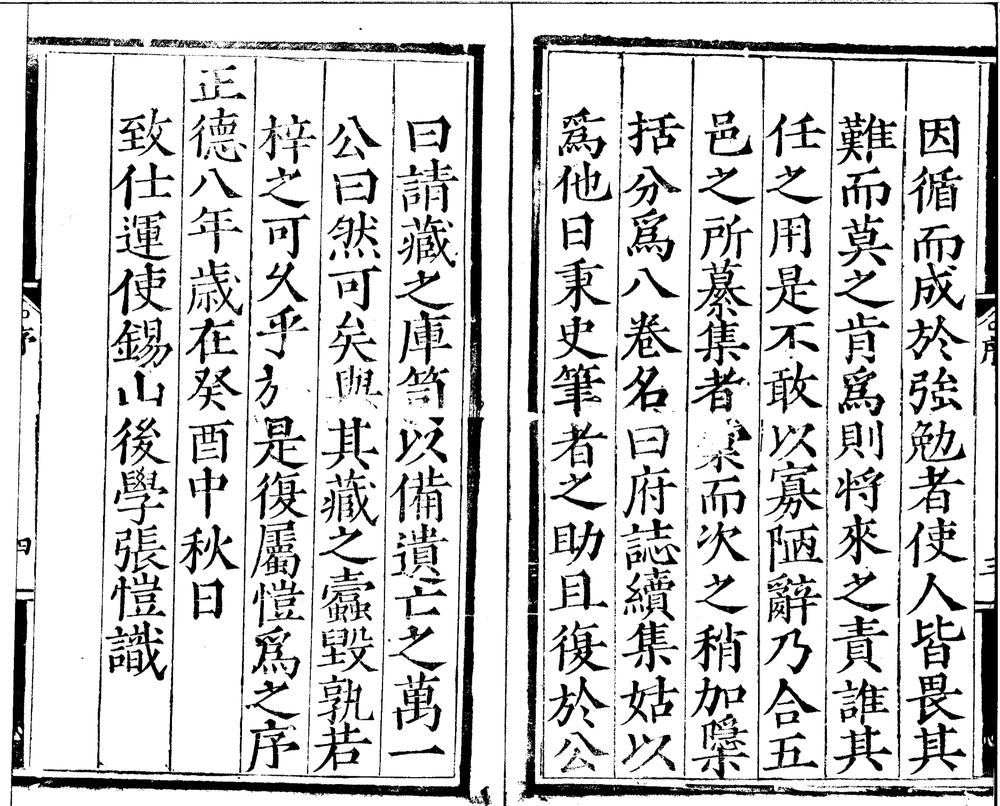 因循而成於強勉者使人皆畏其
難而莫之肯爲則將來之責誰其
任之用是不敢以寡陋辭乃合五
邑之所纂集者稾而次之稍加隱
括分爲八卷名曰府誌續集姑以
爲他日秉史筆者之助且復於公
曰請藏之庫笥以備遺亡之萬一
公曰然可矣與其藏之蠹毀孰若
梓之可久乎於是復屬愷爲之序
正德八年歲在癸酉中秋日
致仕運使錫山後學張愷識
序
四